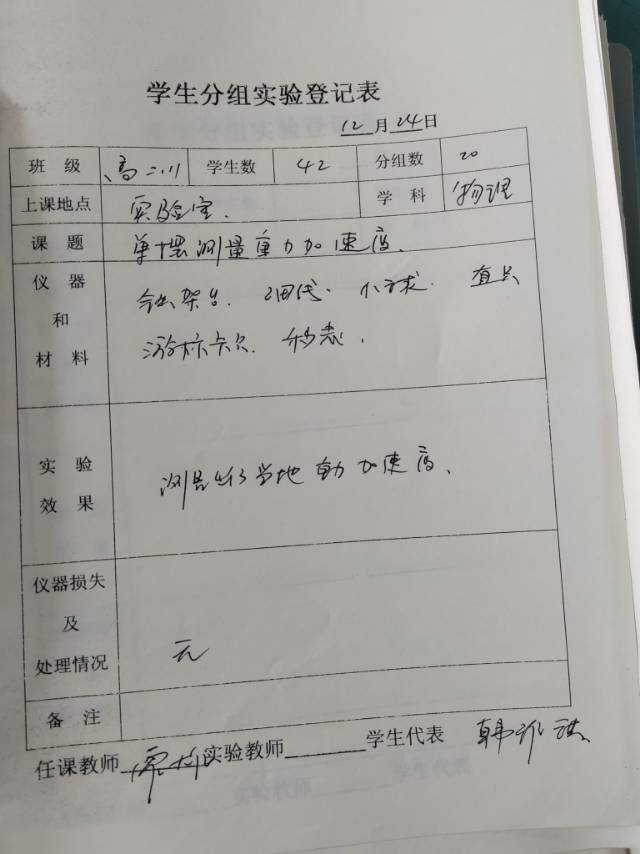 学生分组实验登记表
12月24日
班 级 高二 学生数 42 分组数 20
上课地点 实验室. 学 科 物理
课 题 单摆测量重力加速度.
仪 器 和 材 料 铁架台. 细线. 小球. 直尺
游标卡尺. 秒表.
实 验 效 果 测量出了当地重力加速度.
仪器损失 及 处理情况 无
备 注
任课教师 实验教师 学生代表 韩